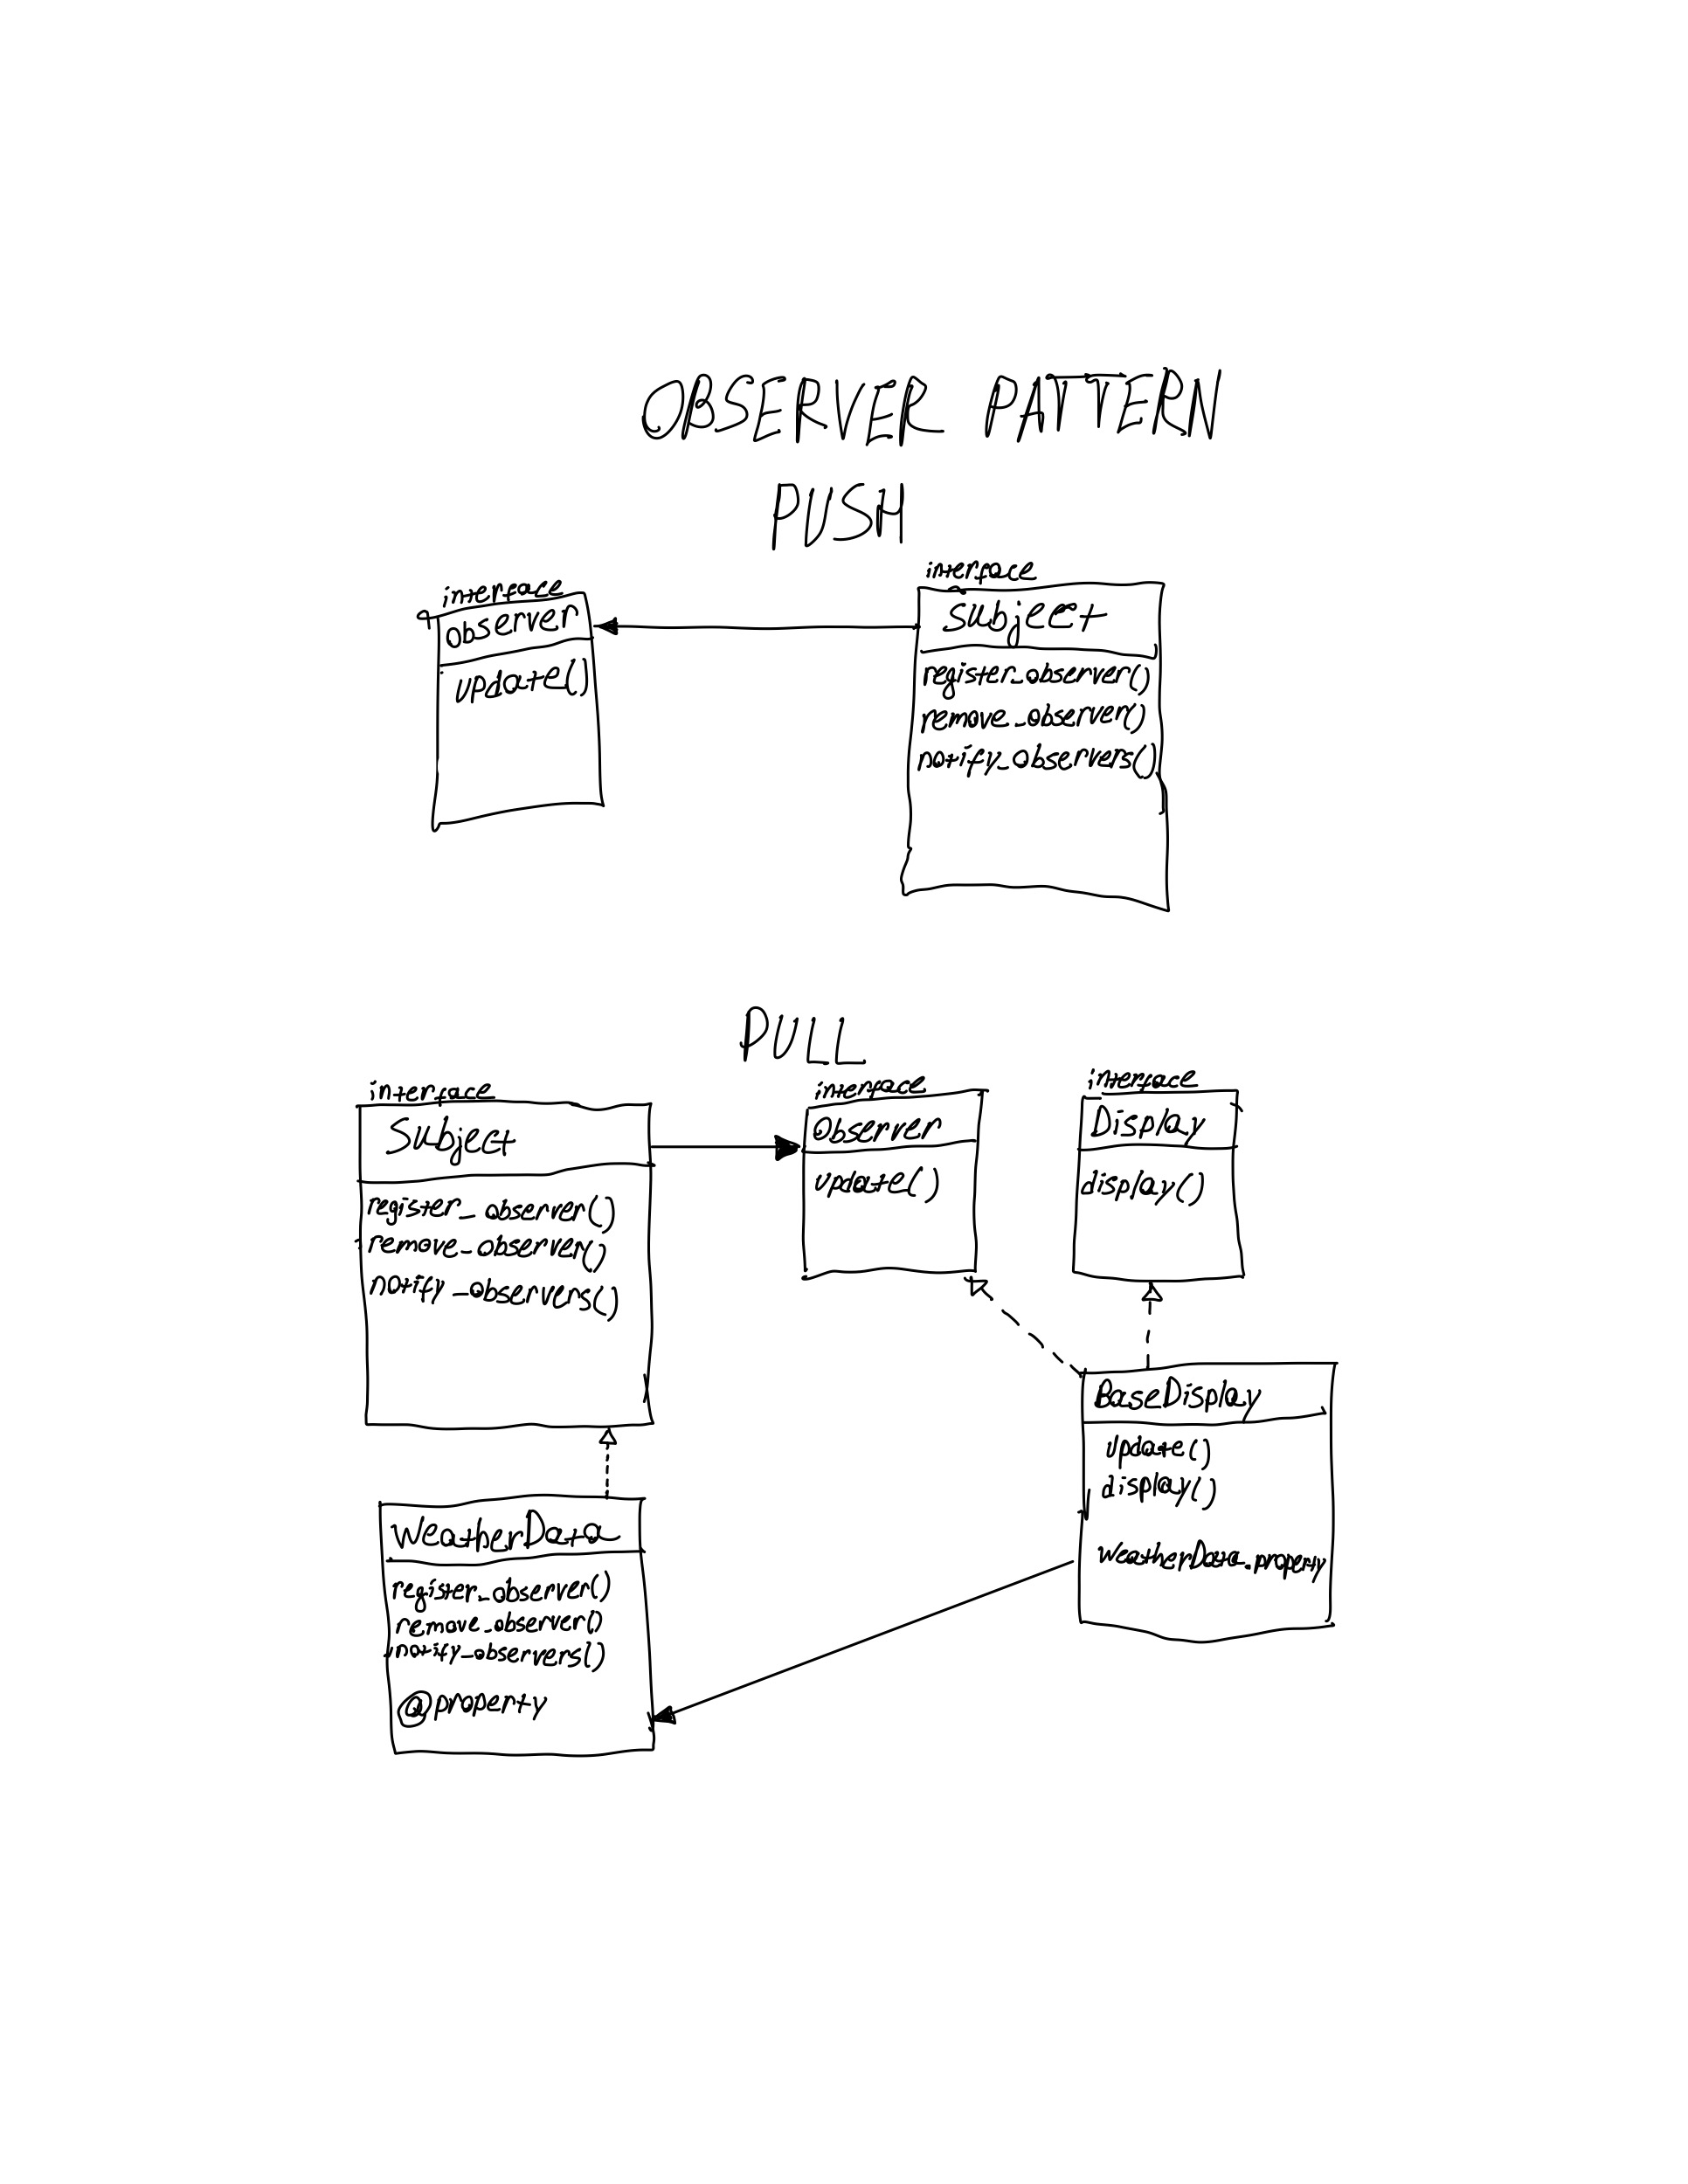 OBSERVER PATTERN
PUSH
interface
observer
update()
interface
Subject
register_observer()
remove_observer()
notify_observers()
PULL
interface
Subject
register_observer()
remove_observer()
notify_observers()
interface
Observer
update()
interface
Display
display()
BaseDisplay
update()
display()
WeatherData.property
WeatherData
register_observer()
remove_observer()
notify_observers()
@property